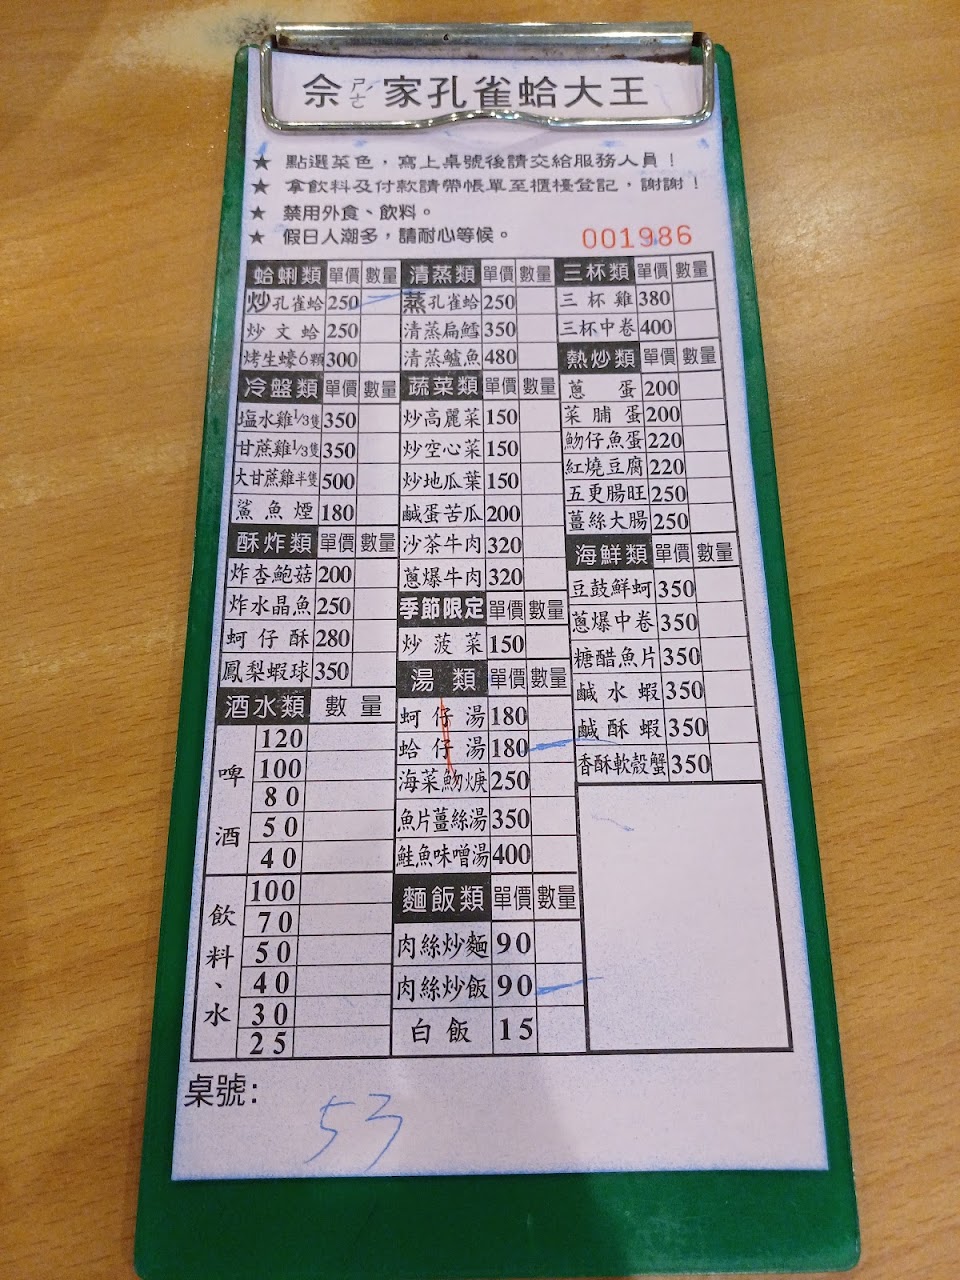 佘ㄕㄜˊ家孔雀蛤大王
★ 點選菜色，寫上桌號後請交給服務人員！
★ 拿飲料及付款請帶帳單至櫃檯登記，謝謝！
★ 禁用外食、飲料。
★ 假日人潮多，請耐心等候。
001986
蛤蜊類 單價 數量
炒孔雀蛤 250
炒文蛤 250
烤生蠔6顆 300
冷盤類 單價 數量
塩水雞1/3隻 350
甘蔗雞1/3隻 350
大甘蔗雞半隻 500
鯊魚煙 180
酥炸類 單價 數量
炸杏鮑菇 200
炸水晶魚 250
蚵仔酥 280
鳳梨蝦球 350
酒水類 數量
啤酒
120
100
80
50
40
飲料、水
100
70
50
40
30
25
清蒸類 單價 數量
蒸孔雀蛤 250
清蒸扁鱈 350
清蒸鱸魚 480
蔬菜類 單價 數量
炒高麗菜 150
炒空心菜 150
炒地瓜葉 150
鹹蛋苦瓜 200
沙茶牛肉 320
蔥爆牛肉 320
季節限定 單價 數量
炒菠菜 150
湯類 單價 數量
蚵仔湯 180
蛤仔湯 180
海菜魩焿 250
魚片薑絲湯 350
鮭魚味噌湯 400
麵飯類 單價 數量
肉絲炒麵 90
肉絲炒飯 90
白飯 15
三杯類 單價 數量
三杯雞 380
三杯中卷 400
熱炒類 單價 數量
蔥蛋 200
菜脯蛋 200
魩仔魚蛋 220
紅燒豆腐 220
五更腸旺 250
薑絲大腸 250
海鮮類 單價 數量
豆鼓鮮蚵 350
蔥爆中卷 350
糖醋魚片 350
鹹水蝦 350
鹹酥蝦 350
香酥軟殼蟹 350
桌號：
53